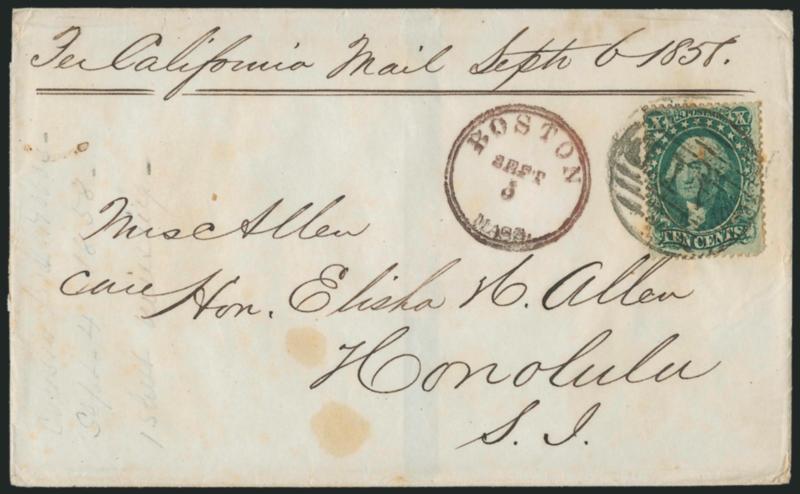 Per California Mail Sept 6 1858.
BOSTON
SEPT
5
MASS.
X U.S. POSTAGE X
TEN CENTS
Miss Allen
Care Hon. Elisha H. Allen
Honolulu
S. I.
Sept 4 1858